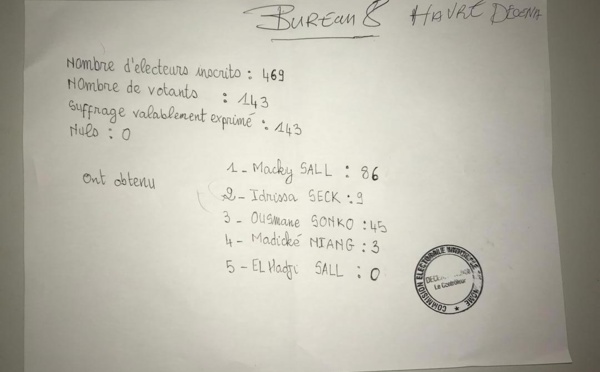 Bureau 8 HAVRE
Nombre d'électeurs inscrits : 469
NOmbre de votants : 143
Suffrage valablement exprimé : 143
Nuls : 0
Ont obtenu
1 - Macky SALL : 86
2 - Idrissa SECK : 9
3 - Ousmane SONKO : 45
4 - Madické NIANG : 3
5 - EL Hadji SALL : 0
COMMISION ELECTORALE
Le Contrôleur